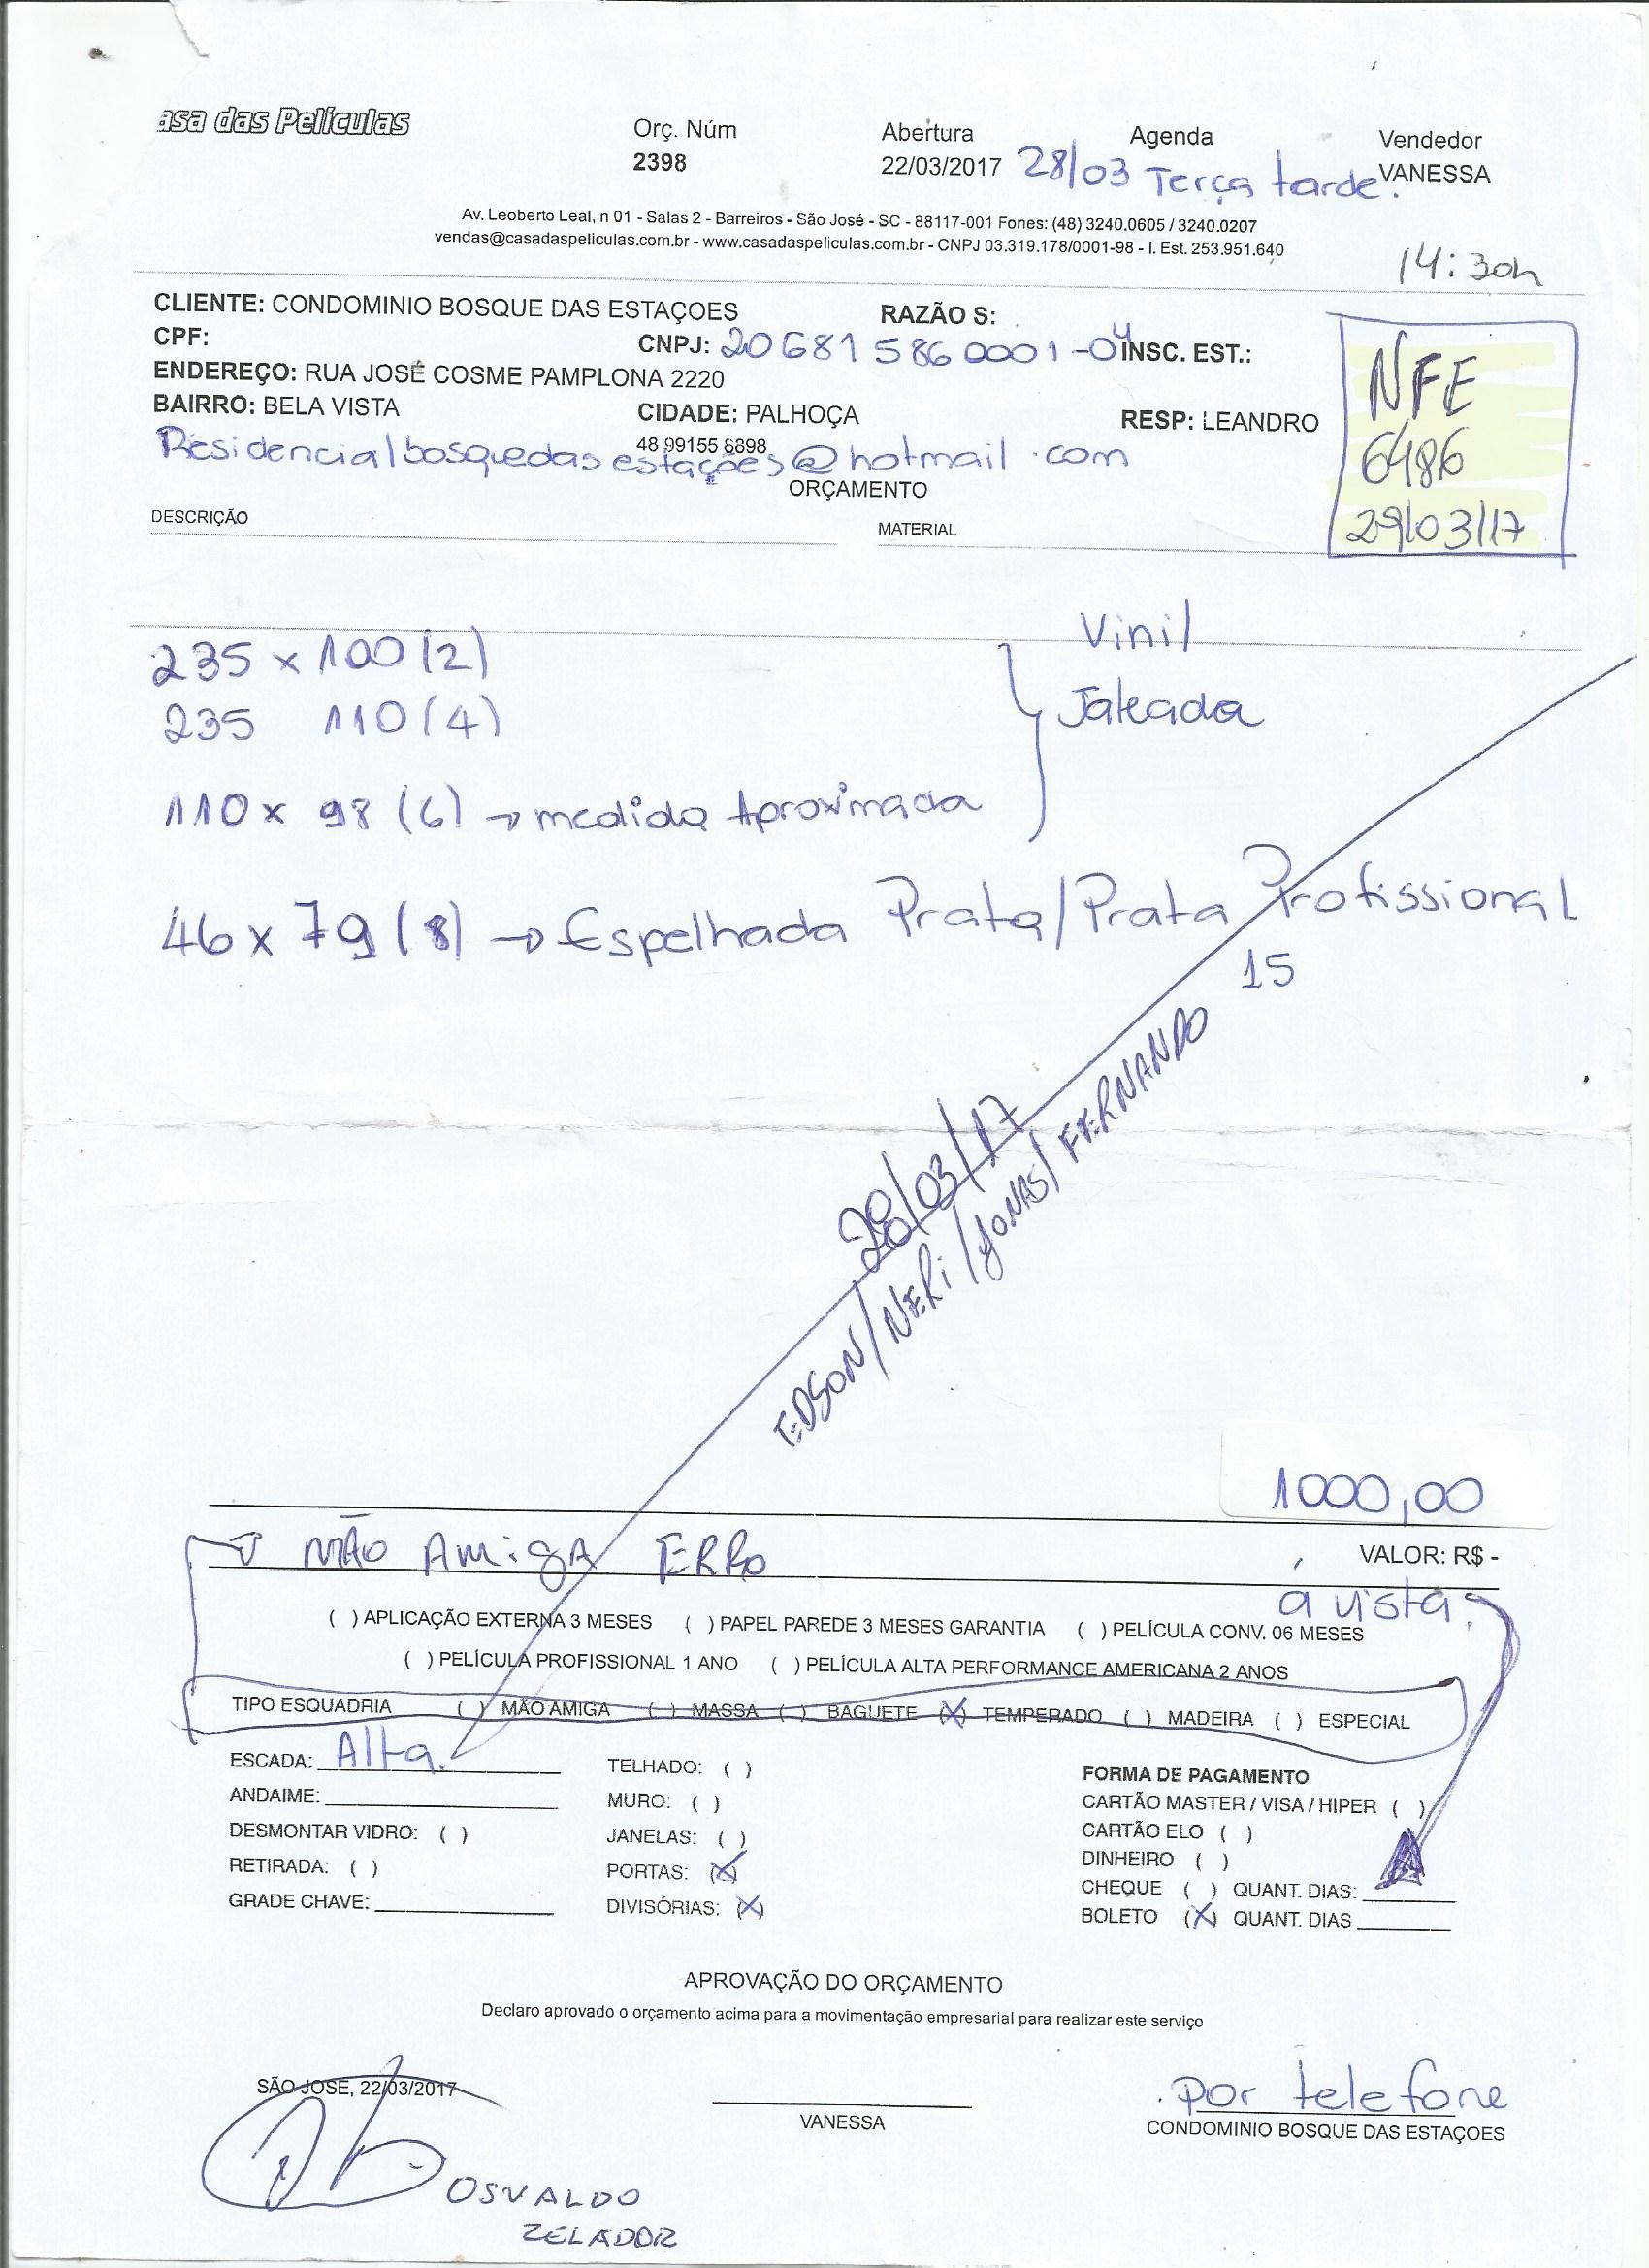 asa das Películas
Orç. Núm Abertura Agenda Vendedor
2398 22/03/2017 28/03 Terça tarde. VANESSA
Av. Leoberto Leal, n 01 - Salas 2 - Barreiros - São José - SC - 88117-001 Fones: (48) 3240.0605 / 3240.0207
vendas@casadaspeliculas.com.br - www.casadaspeliculas.com.br - CNPJ 03.319.178/0001-98 - I. Est. 253.951.640
14:30h
CLIENTE: CONDOMINIO BOSQUE DAS ESTAÇOES RAZÃO S:
CPF: CNPJ: 20681586 0001-04 INSC. EST.:
ENDEREÇO: RUA JOSÉ COSME PAMPLONA 2220
BAIRRO: BELA VISTA CIDADE: PALHOÇA RESP: LEANDRO
48 99155 6898
Residencialbosquedasestações@hotmail.com
NFE
6486
29/03/17
ORÇAMENTO
DESCRIÇÃO MATERIAL
235 x 100 (2)
235 110 (4)
110 x 98 (6) → medida Aproximada
Vinil
Jateada
46 x 79 (8) → Espelhada Prata/Prata Profissional
15
28/03/17
EDSON/NERI/JONAS/FERNANDO
1000,00
MÃO AMIGA ERRO
VALOR: R$ -
à vista.
( ) APLICAÇÃO EXTERNA 3 MESES ( ) PAPEL PAREDE 3 MESES GARANTIA ( ) PELÍCULA CONV. 06 MESES
( ) PELÍCULA PROFISSIONAL 1 ANO ( ) PELÍCULA ALTA PERFORMANCE AMERICANA 2 ANOS
TIPO ESQUADRIA ( ) MÃO AMIGA ( ) MASSA ( ) BAGUETE (X) TEMPERADO ( ) MADEIRA ( ) ESPECIAL
ESCADA: Alta. TELHADO: ( ) FORMA DE PAGAMENTO
ANDAIME: MURO: ( ) CARTÃO MASTER / VISA / HIPER ( )
DESMONTAR VIDRO: ( ) JANELAS: ( ) CARTÃO ELO ( )
RETIRADA: ( ) PORTAS: (X) DINHEIRO ( )
GRADE CHAVE: DIVISÓRIAS: (X) CHEQUE ( ) QUANT. DIAS:
BOLETO (X) QUANT. DIAS
APROVAÇÃO DO ORÇAMENTO
Declaro aprovado o orçamento acima para a movimentação empresarial para realizar este serviço
SÃO JOSE, 22/03/2017 por telefone
VANESSA CONDOMINIO BOSQUE DAS ESTAÇOES
OSVALDO
ZELADOR